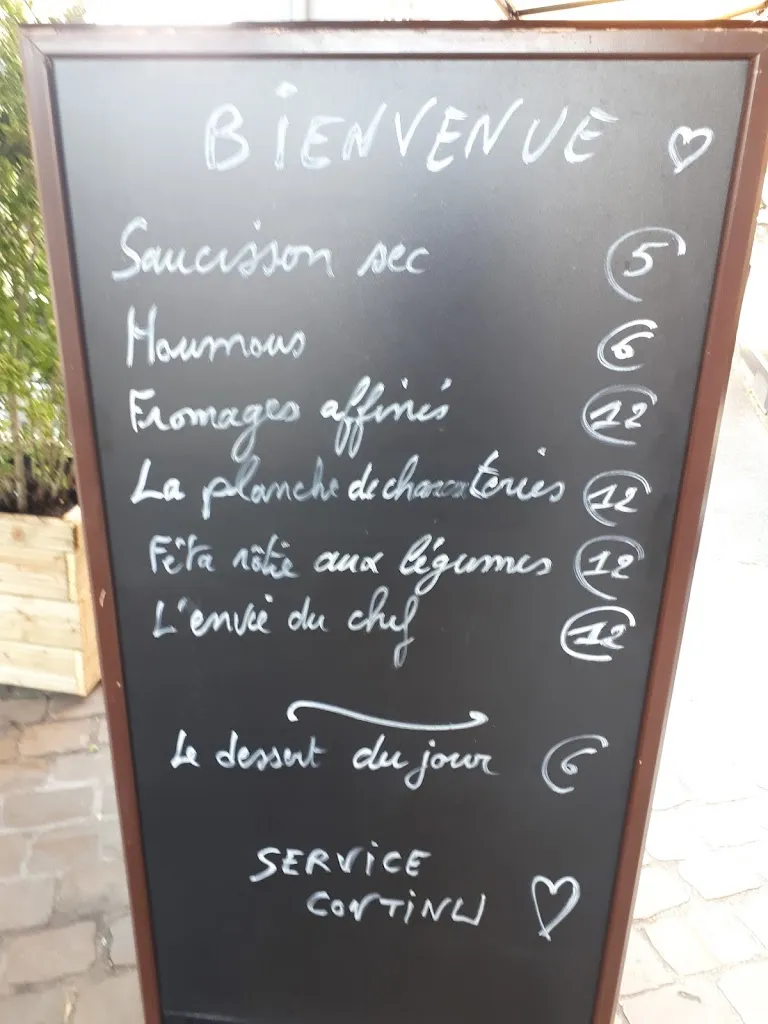 BIENVENUE
Saucisson sec 5
Houmous 6
Fromages affinés 12
La planche de charcuteries 12
Fêta rôtie aux légumes 12
L'envie du chef 12
Le dessert du jour 6
SERVICE
CONTINU